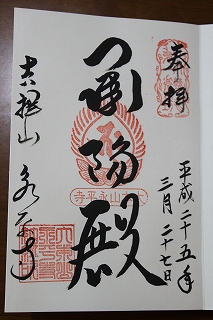 奉拝
平成二十五年
三月二十七日
承陽殿
大本山永平寺
吉祥山
永平寺